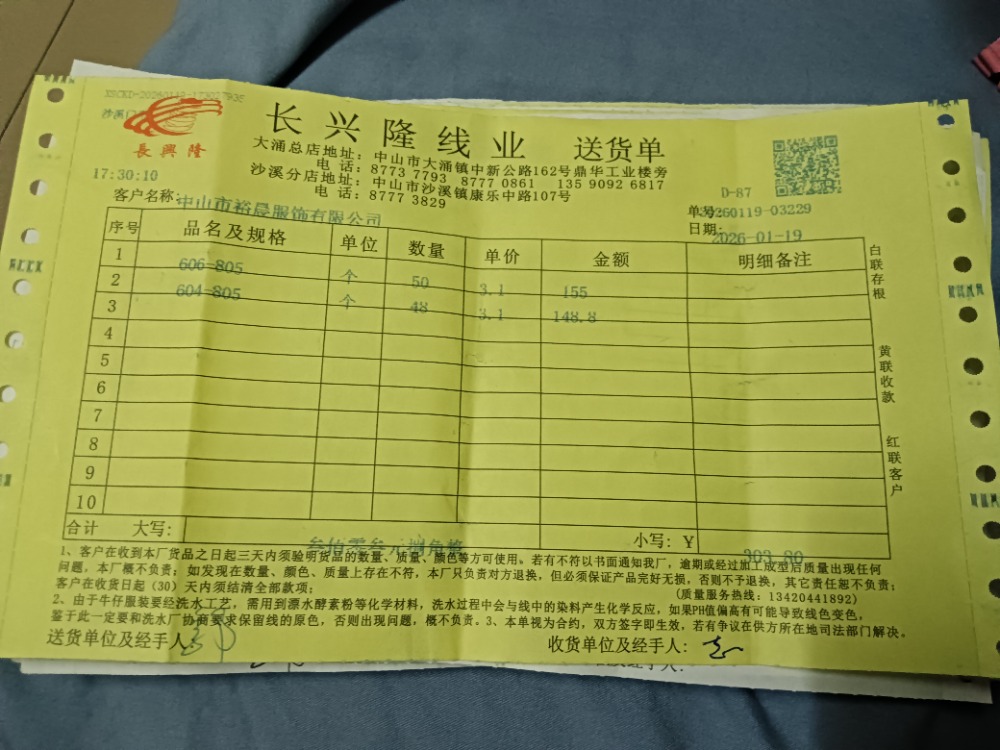 XSCKD-20260119-17302793E
沙溪
長興隆
长兴隆线业 送货单
大涌总店地址：中山市大涌镇中新公路162号鼎华工业楼旁
电话：8773 7793 8777 0861 135 9092 6817
沙溪分店地址：中山市沙溪镇康乐中路107号
电话：8777 3829
17:30:10
D-87
客户名称：中山市裕晨服饰有限公司
单号：20260119-03229
日期：2026-01-19
序号 品名及规格 单位 数量 单价 金额 明细备注
1 606-805 个 50 3.1 155
2 604-805 个 48 3.1 148.8
3
4
5
6
7
8
9
10
合计 大写： 叁佰零叁元捌角整 小写：￥ 303.80
白联存根
黄联收款
红联客户
1、客户在收到本厂货品之日起三天内须验明货品的数量、质量、颜色等方可使用。若有不符以书面通知我厂，逾期或经过加工成型后质量出现任何
问题，本厂概不负责；如发现在数量、颜色、质量上存在不符，本厂只负责对方退换，但必须保证产品完好无损，否则不予退换，其它责任恕不负责；
客户在收货日起（30）天内须结清全部款项； （质量服务热线：13420441892）
2、由于牛仔服装要经洗水工艺，需用到漂水酵素粉等化学材料，洗水过程中会与线中的染料产生化学反应，如果PH值偏高有可能导致线色变色，
鉴于此一定要和洗水厂协商要求保留线的原色，否则出现问题，概不负责。3、本单视为合约，双方签字即生效，若有争议在供方所在地司法部门解决。
送货单位及经手人： 收货单位及经手人：